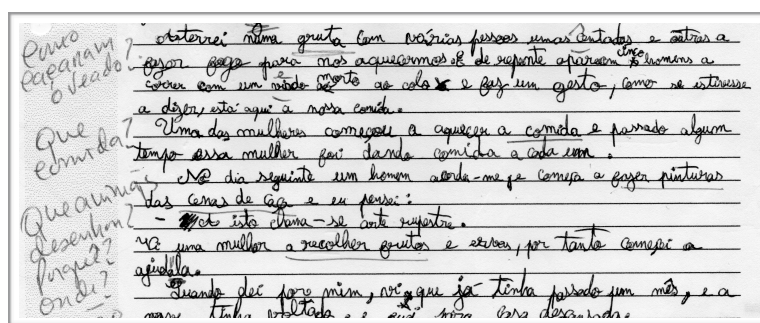 Como
caçaram
o veado?
Que
comida?
Que animais
desenhou?
Porquê?
onde?
Aterrei numa gruta com várias pessoas umas sentadas e outras a
fazer fogo para nos aquecermos. E de repente aparecem cinco homens a
correr com um veado morto ao colo e faz um gesto, como se estivesse
a dizer, está aqui a nossa comida.
Uma das mulheres começou a aquecer a comida e passado algum
tempo essa mulher foi dando comida a cada um.
No dia seguinte um homem acorda-me e começa a fazer pinturas
das cenas de caça e eu pensei:
- isto chama-se arte rupestre.
Vi uma mulher a recolher frutos e ervas, por tanto começei a
ajudála.
Quando dei por mim, vi que já tinha passado um mês, e a
nave tinha voltado e para casa descansada.